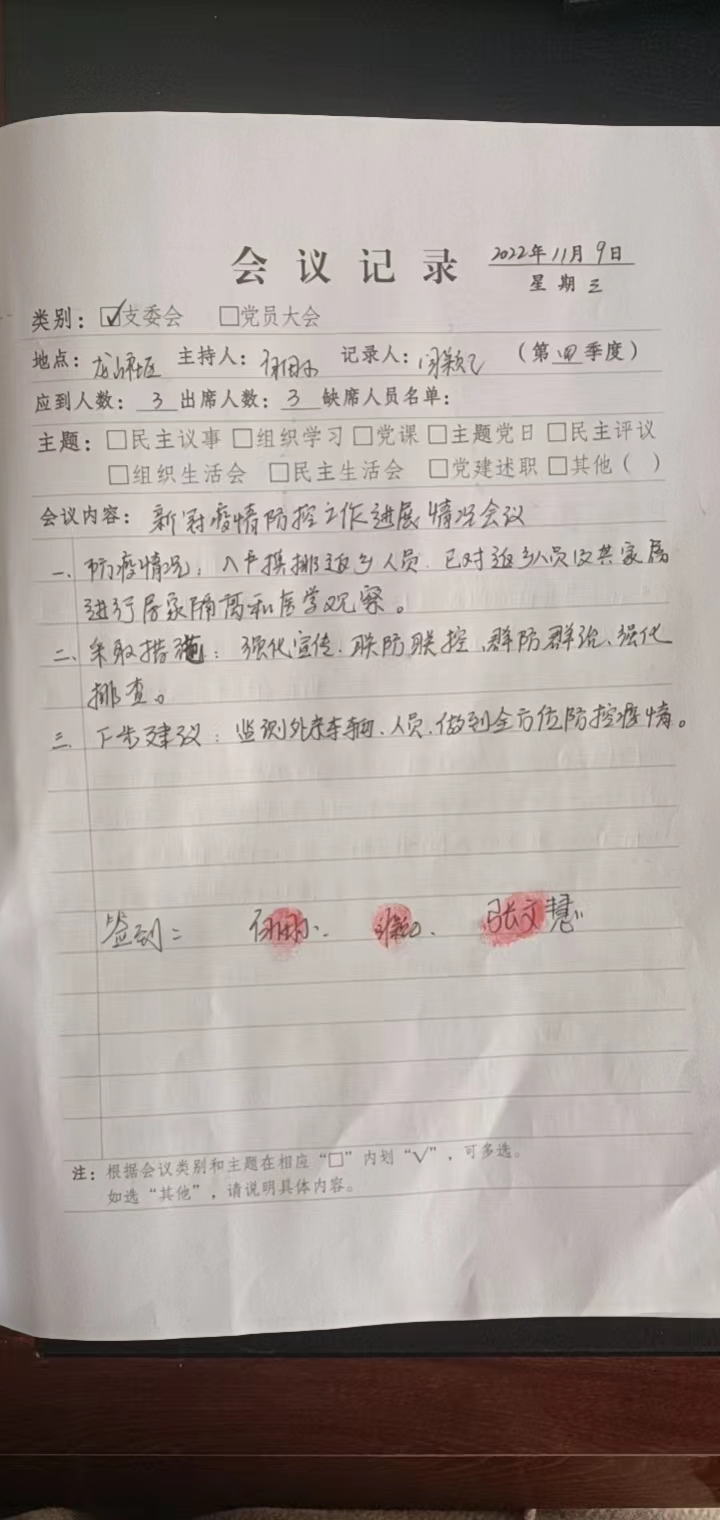 会议记录 2022年11月9日
星期三
类别：☑支委会 □党员大会
地点： 主持人： 记录人： （第四季度）
应到人数：3 出席人数：3 缺席人员名单：
主题：□民主议事 □组织学习 □党课 □主题党日 □民主评议
□组织生活会 □民主生活会 □党建述职 □其他（ ）
会议内容：新冠疫情防控工作进展情况会议
一、防疫情况：入户摸排返乡人员．已对返乡人员及其家属
进行居家隔离和医学观察。
二、采取措施：强化宣传、联防联控、群防群治、强化
排查。
三、下步建议：监测外来车辆、人员、做到全方位防控疫情。
签到： 张文慧
注：根据会议类别和主题在相应“□”内划“√”，可多选。
如选“其他”，请说明具体内容。